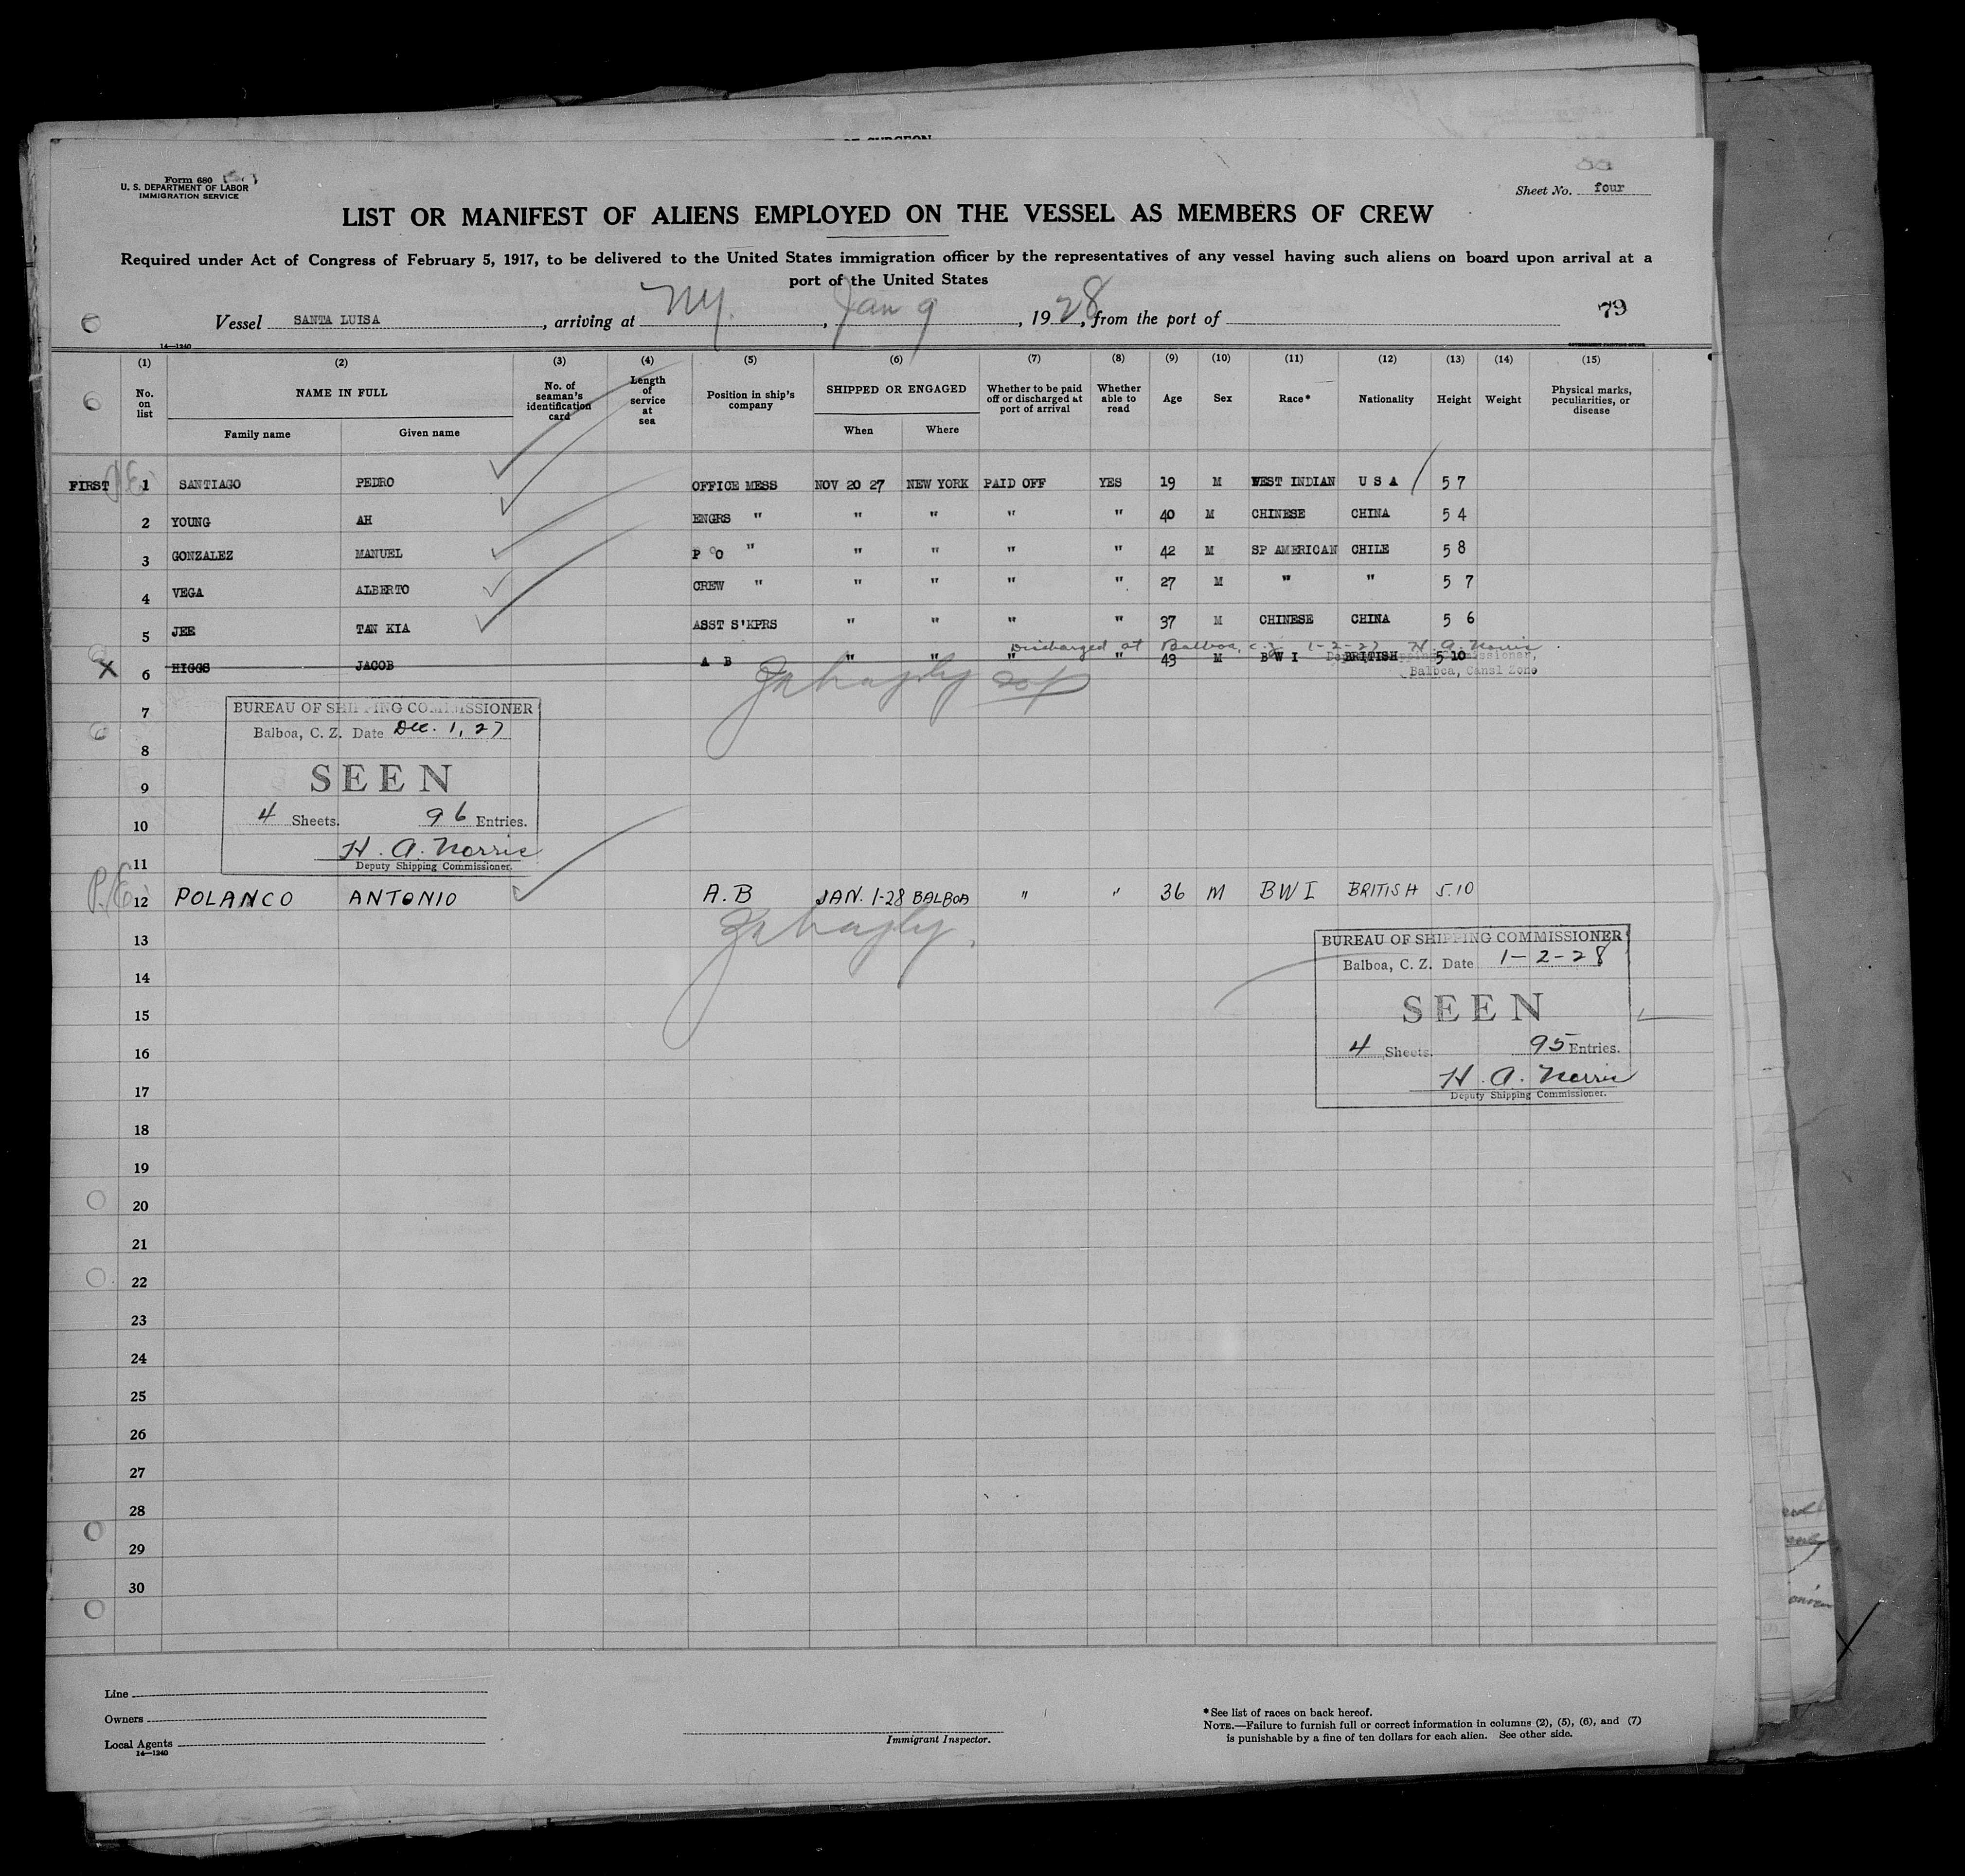 Form 680
U. S. DEPARTMENT OF LABOR
IMMIGRATION SERVICE
Sheet No. four
LIST OR MANIFEST OF ALIENS EMPLOYED ON THE VESSEL AS MEMBERS OF CREW
Required under Act of Congress of February 5, 1917, to be delivered to the United States immigration officer by the representatives of any vessel having such aliens on board upon arrival at a
port of the United States
Vessel SANTA LUISA, arriving at NY., Jan 9, 1928, from the port of
79
14—1240
GOVERNMENT PRINTING OFFICE
(1) (2) (3) (4) (5) (6) (7) (8) (9) (10) (11) (12) (13) (14) (15)
No. on list NAME IN FULL No. of seaman's identification card Length of service at sea Position in ship's company SHIPPED OR ENGAGED Whether to be paid off or discharged at port of arrival Whether able to read Age Sex Race* Nationality Height Weight Physical marks, peculiarities, or disease
Family name Given name When Where
FIRST 1 SANTIAGO PEDRO OFFICE MESS NOV 20 27 NEW YORK PAID OFF YES 19 M WEST INDIAN U S A 5 7
2 YOUNG AH ENGRS " " " " " 40 M CHINESE CHINA 5 4
3 GONZALEZ MANUEL P O " " " " " 42 M SP AMERICAN CHILE 5 8
4 VEGA ALBERTO CREW " " " " " 27 M " " 5 7
5 JEE TAN KIA ASST S'KPRS " " " " 37 M CHINESE CHINA 5 6
Discharged at Balboa, C.Z. 1-2-27 H. A. Norris
X 6 HIGGS JACOB A B " " " " 49 M B W I BRITISH 5 10
Balboa, Canal Zone
7
BUREAU OF SHIPPING COMMISSIONER
Balboa, C. Z. Date Dec. 1, 27
8
SEEN
9
4 Sheets. 96 Entries.
10
H. A. Norris
Deputy Shipping Commissioner.
11
P/E 12 POLANCO ANTONIO A.B JAN. 1-28 BALBOA " " 36 M BWI BRITISH 5.10
13
BUREAU OF SHIPPING COMMISSIONER
Balboa, C. Z. Date 1-2-28
14
SEEN
15
16
4 Sheets. 95 Entries.
H. A. Norris
17
Deputy Shipping Commissioner.
18
19
20
21
22
23
24
25
26
27
28
29
30
Line
Owners
Local Agents
14—1240
Immigrant Inspector.
*See list of races on back hereof.
NOTE.—Failure to furnish full or correct information in columns (2), (5), (6), and (7)
is punishable by a fine of ten dollars for each alien. See other side.